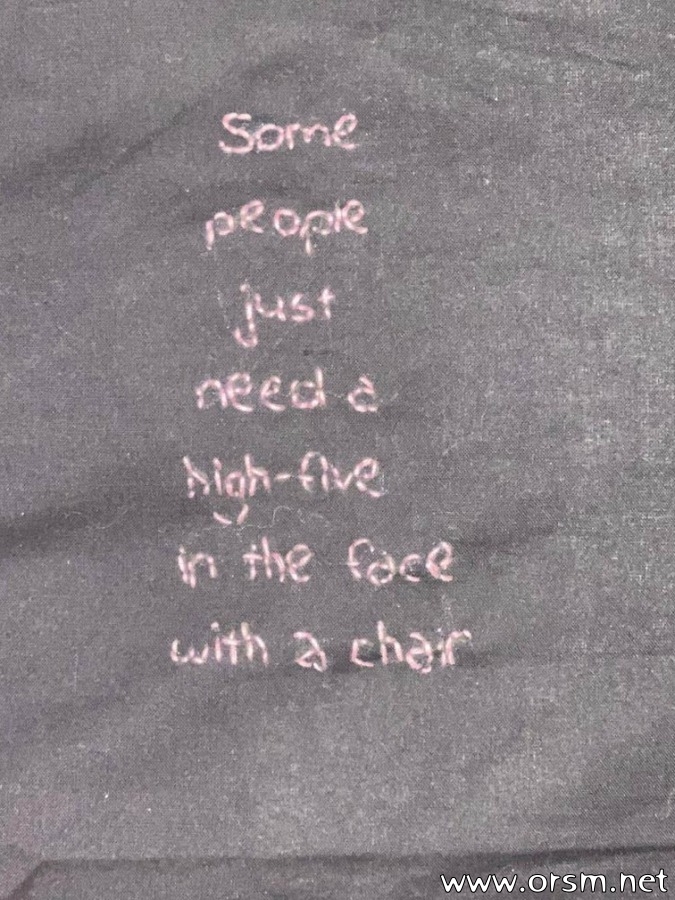 Some
people
just
need a
high-five
in the face
with a chair
www.orsm.net